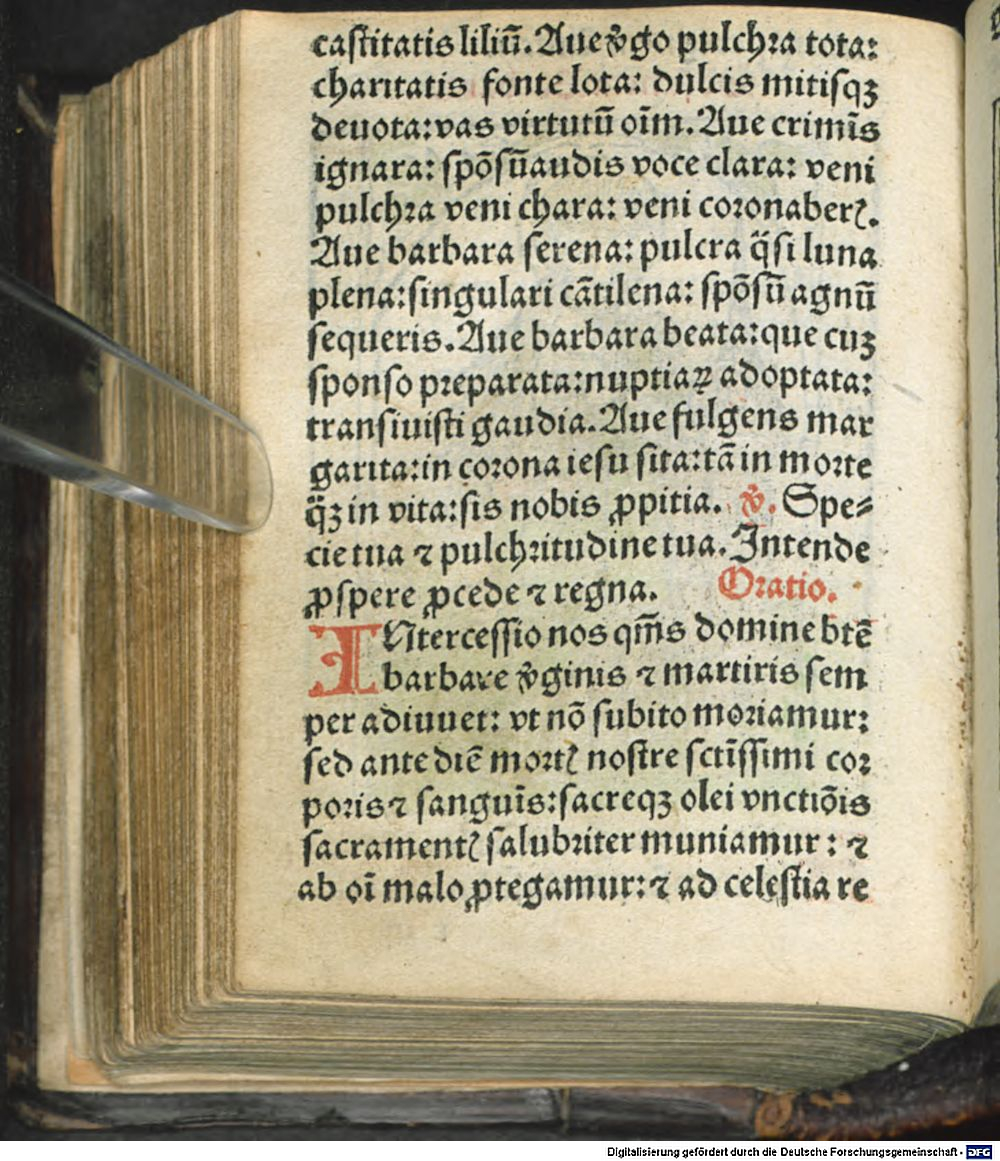 caſtitatis liliū. Aue ꝟgo pulchꝛa tota:
charitatis fonte lota: dulcis mitiſqꝫ
deuota: vas virtutū oīm. Aue crimīs
ignara: ſpōſū audis voce clara: veni
pulchꝛa veni chara: veni coꝛonaberꝭ.
Aue barbara ſerena: pulcra q̈ſi luna
plena: ſingulari cātilena: ſpōſū agnū
ſequeris. Aue barbara beata: que cuꝫ
ſponſo pꝛeparata: nuptiaꝝ adoptata:
tranſiuiſti gaudia. Aue fulgens mar
garita: in coꝛona ieſu ſita: tā in moꝛte
q̈ꝫ in vita: ſis nobis ꝓpitia. ꝟ. Spe⸗
cie tua ⁊ pulchꝛitudine tua. Intende
ꝓſpere ꝓcede ⁊ regna. Oꝛatio.
INterceſſio nos qm̄s domine btē
barbare ꝟginis ⁊ martiris ſem
per adiuuet: vt nō ſubito moꝛiamur:
ſed ante diē moꝛtꝭ noſtre ſctīſſimi coꝛ
poꝛis ⁊ ſanguīs: ſacreqꝫ olei vnctiōis
ſacramentꝭ ſalubꝛiter muniamur: ⁊
ab oī malo ꝓtegamur: ⁊ ad celeſtia re
Digitalisierung gefördert durch die Deutsche Forschungsgemeinschaft - DFG